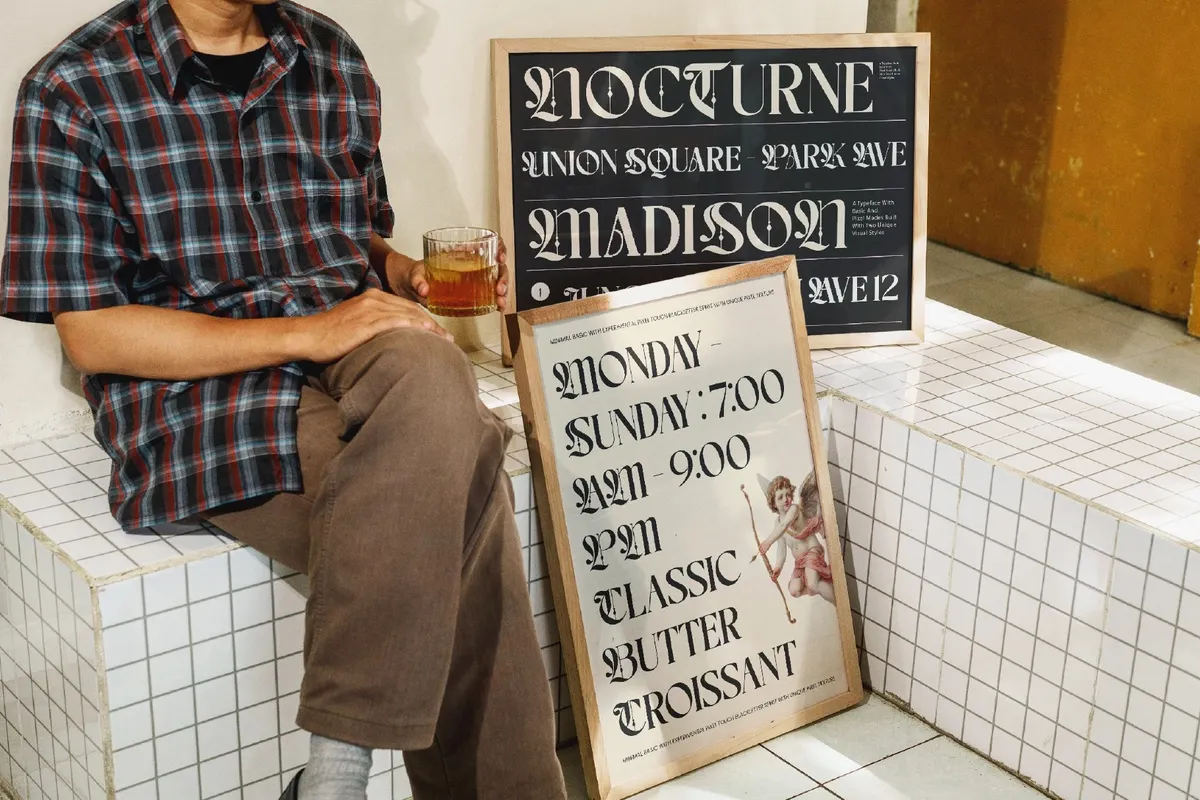 NOCTURNE
UNION SQUARE - PARK AVE
MADISON
A Typeface With
Basic And
Pixel Mades Built
With Two Unique
Visual Styles
1
AVE 12
MINIMAL BASIC WITH EXPERIMENTAL PIXEL TOUCH BLACKLETTER SPIRIT WITH UNIQUE PIXEL TEXTURE
MONDAY -
SUNDAY : 7:00
AM - 9:00
PM
CLASSIC
BUTTER
CROISSANT
MINIMAL BASIC WITH EXPERIMENTAL PIXEL TOUCH BLACKLETTER SPIRIT WITH UNIQUE PIXEL TEXTURE